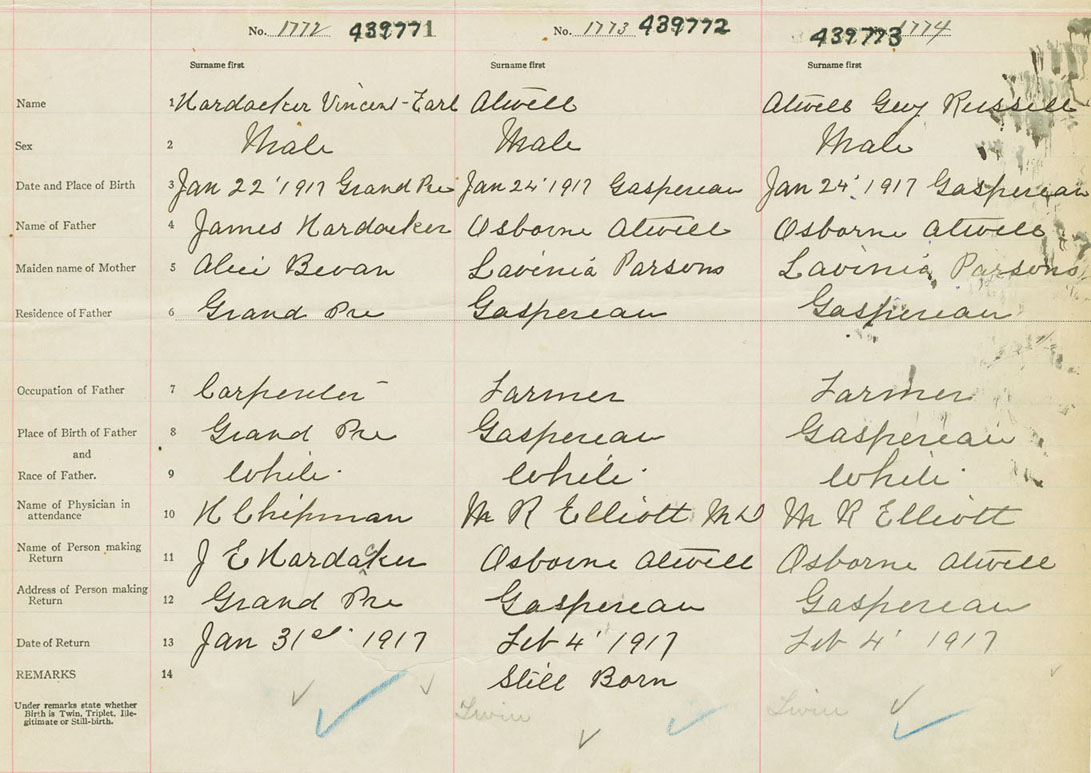 No. 1772 439771 No. 1773 439772 439773 1774
Surname first Surname first Surname first
Name 1 Hardacker Vincent-Earl Atwell Atwell Guy Russell
Sex 2 Male Male Male
Date and Place of Birth 3 Jan 22' 1917 Grand Pre Jan 24' 1917 Gaspereau Jan 24' 1917 Gaspereau
Name of Father 4 James Hardacker Osborne Atwell Osborne Atwell
Maiden name of Mother 5 Alice Bevan Lavinia Parsons Lavinia Parsons
Residence of Father 6 Grand Pre Gaspereau Gaspereau
Occupation of Father 7 Carpenter Farmer Farmer
Place of Birth of Father 8 Grand Pre Gaspereau Gaspereau
and
Race of Father. 9 White White White
Name of Physician in
attendance 10 H Chipman M R Elliott MD M R Elliott
Name of Person making
Return 11 J E Hardacker Osborne Atwell Osborne Atwell
Address of Person making
Return 12 Grand Pre Gaspereau Gaspereau
Date of Return 13 Jan 31st 1917 Feb 4' 1917 Feb 4' 1917
REMARKS 14 Still Born
Under remarks state whether
Birth is Twin, Triplet, Ille-
gitimate or Still-birth.
Twin Twin